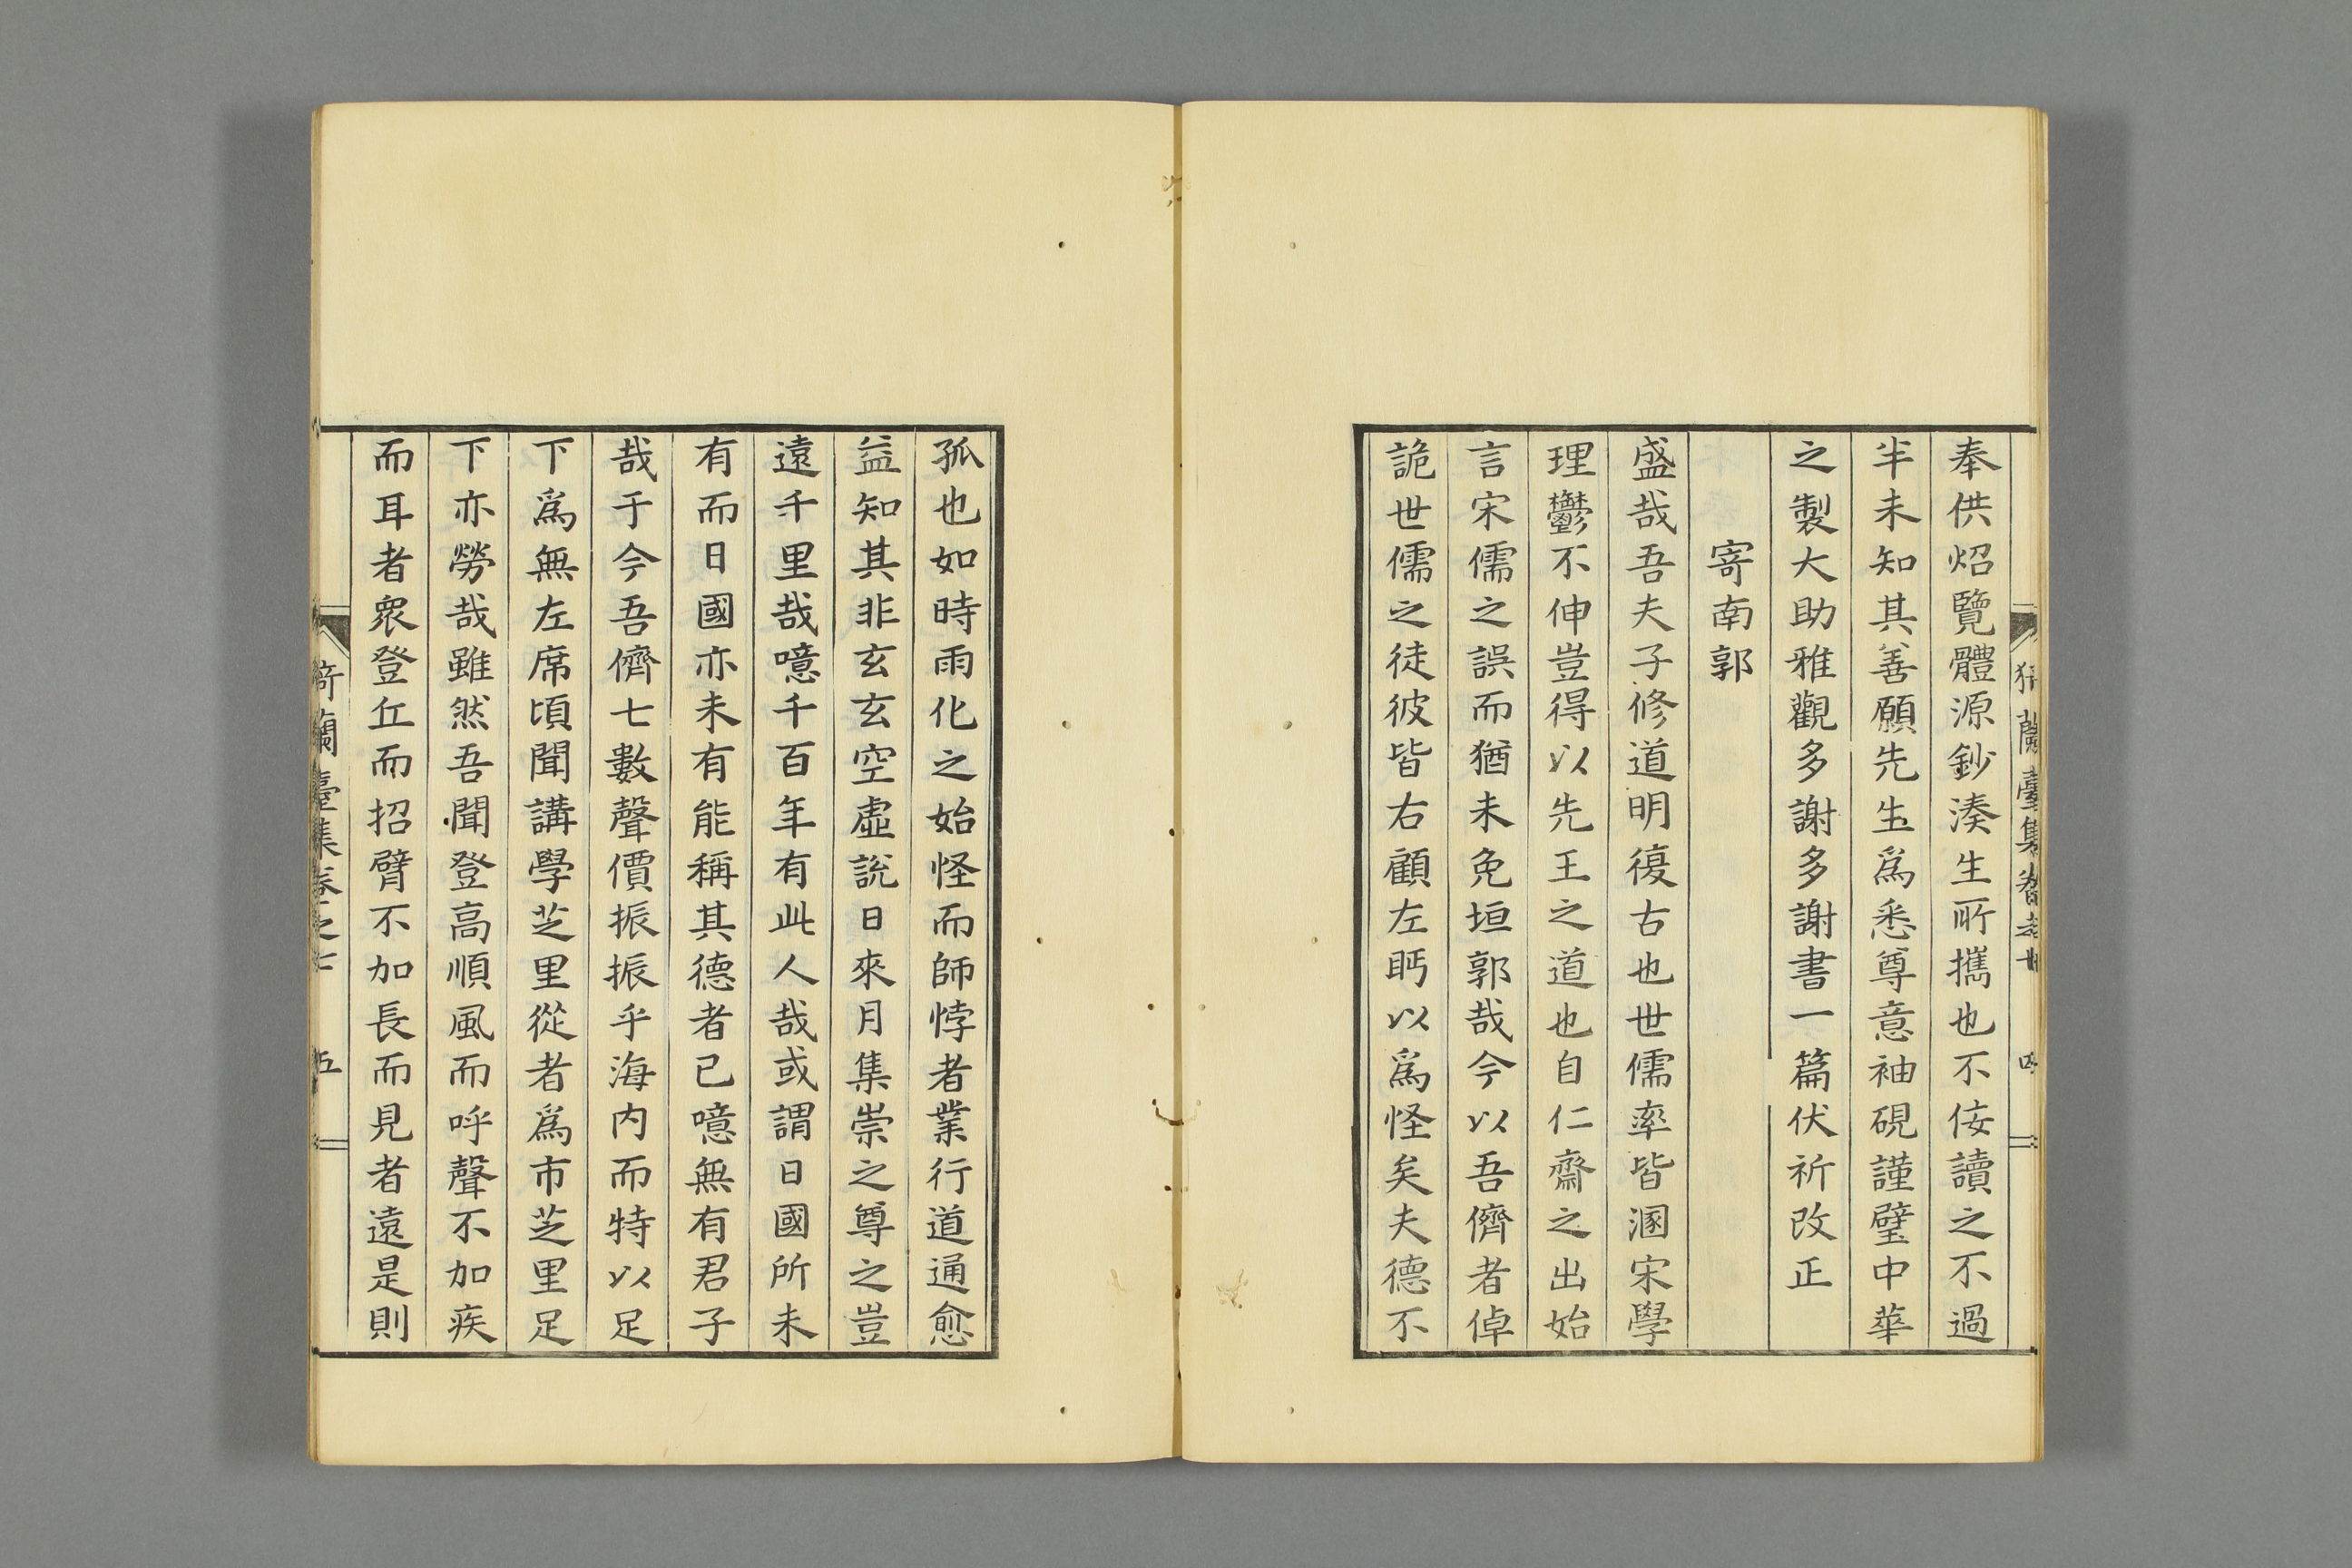 奉供炤覽體源鈔湊生所攜也不侫讀之不過
半未知其善願先生爲悉尊意袖硯謹璧中華
之製大助雅觀多謝多謝書一篇伏祈改正
寄南郭
盛哉吾夫子修道明復古也世儒率皆溷宋學
理鬱不伸豈得以先王之道也自仁齋之出始
言宋儒之誤而猶未免垣郭哉今以吾儕者倬
詭世儒之徒彼皆右顧左眄以爲怪矣夫德不
孤也如時雨化之始怪而師悖者業行道通愈
益知其非玄玄空虛說日來月集崇之尊之豈
遠千里哉噫千百年有此人哉或謂曰國所未
有而日國亦未有能稱其德者已噫無有君子
哉于今吾儕七數聲價振振乎海内而特以足
下爲無左席頃聞講學芝里從者爲市芝里足
下亦勞哉雖然吾聞登高順風而呼聲不加疾
而耳者衆登丘而招臂不加長而見者遠是則
猗蘭臺集卷之七 五